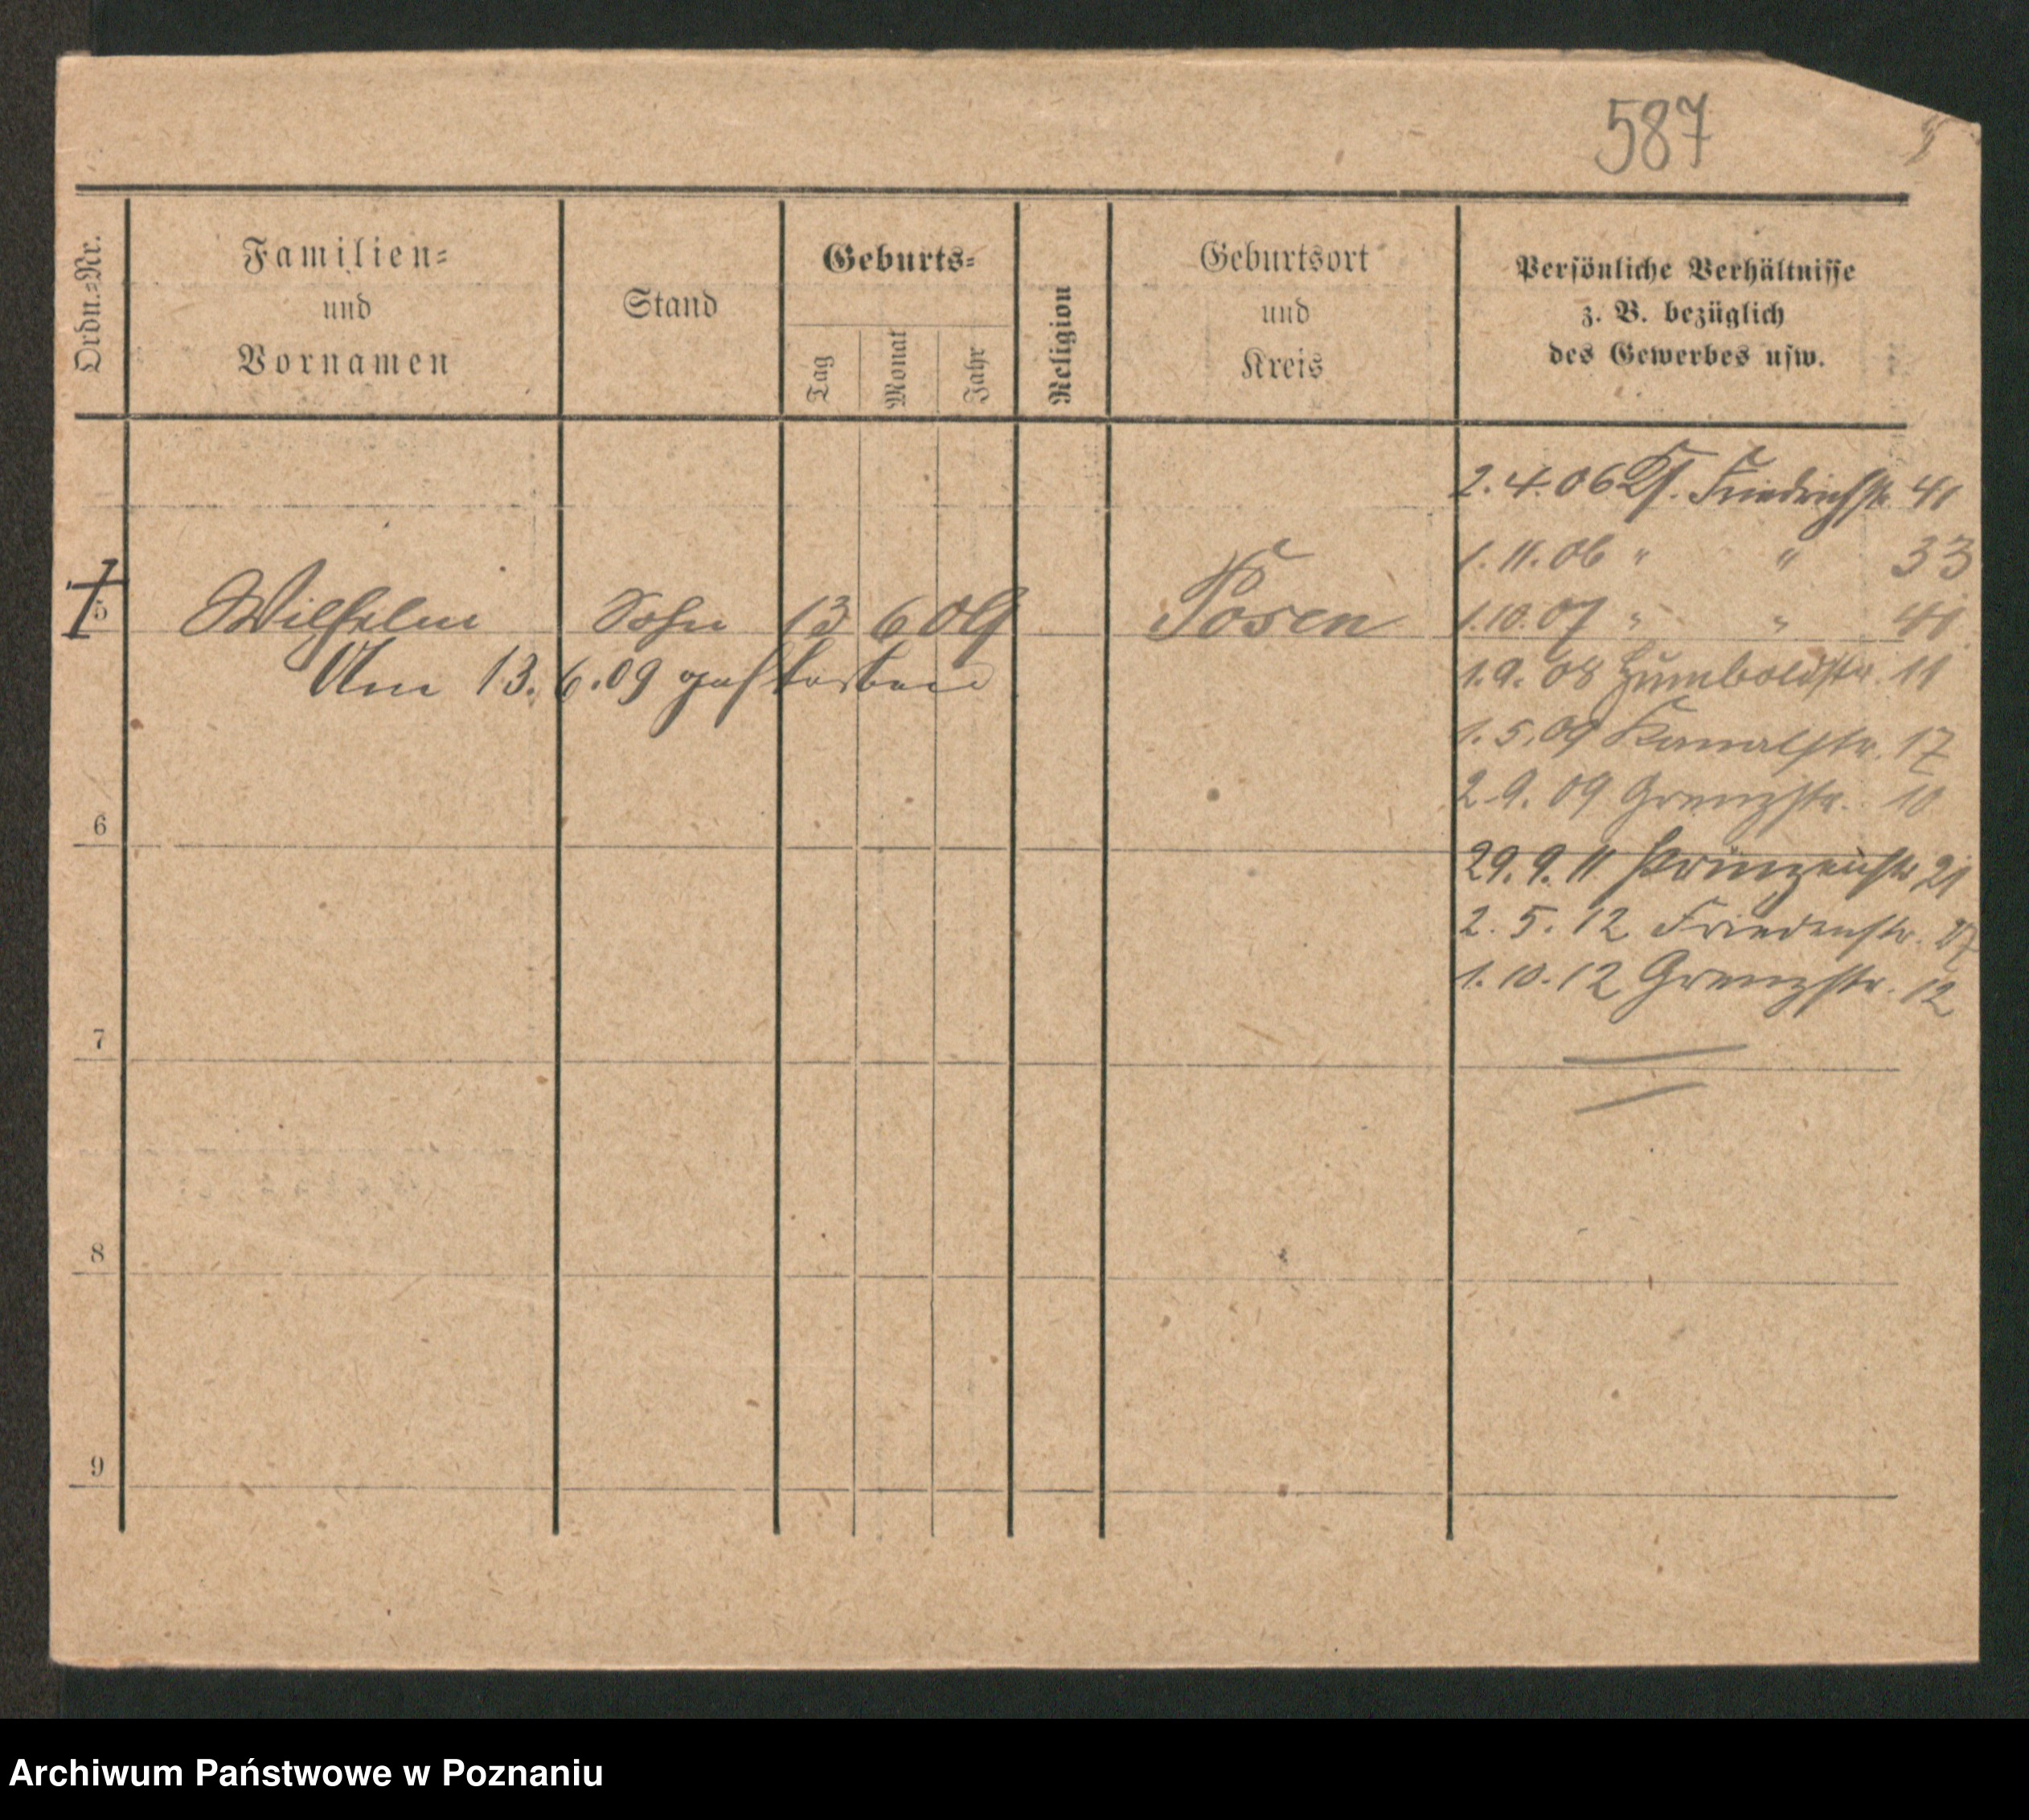 587
Ordn.=Nr.
Familien=
und
Vornamen
Stand
Geburts=
Tag
Monat
Jahr
Religion
Geburtsort
und
Kreis
Persönliche Verhältnisse
z. B. bezüglich
des Gewerbes usw.
2. 4. 06 Friedrichstr. 41
1. 11. 06 " " 33
1. 10. 07 " " 41
5 Wilhelm Sohn 13 6 09 Posen
Am 13. 6. 09 gestorben
1. 9. 08 Humboldstr. 11
1. 5. 09 Kanalstr. 17
2. 9. 09 Grenzstr. 10
6
29. 9. 11 Prinzenstr 21
2. 5. 12 Friedenstr.
1. 10. 12 Grenzstr. 12
7
8
9
Archiwum Państwowe w Poznaniu